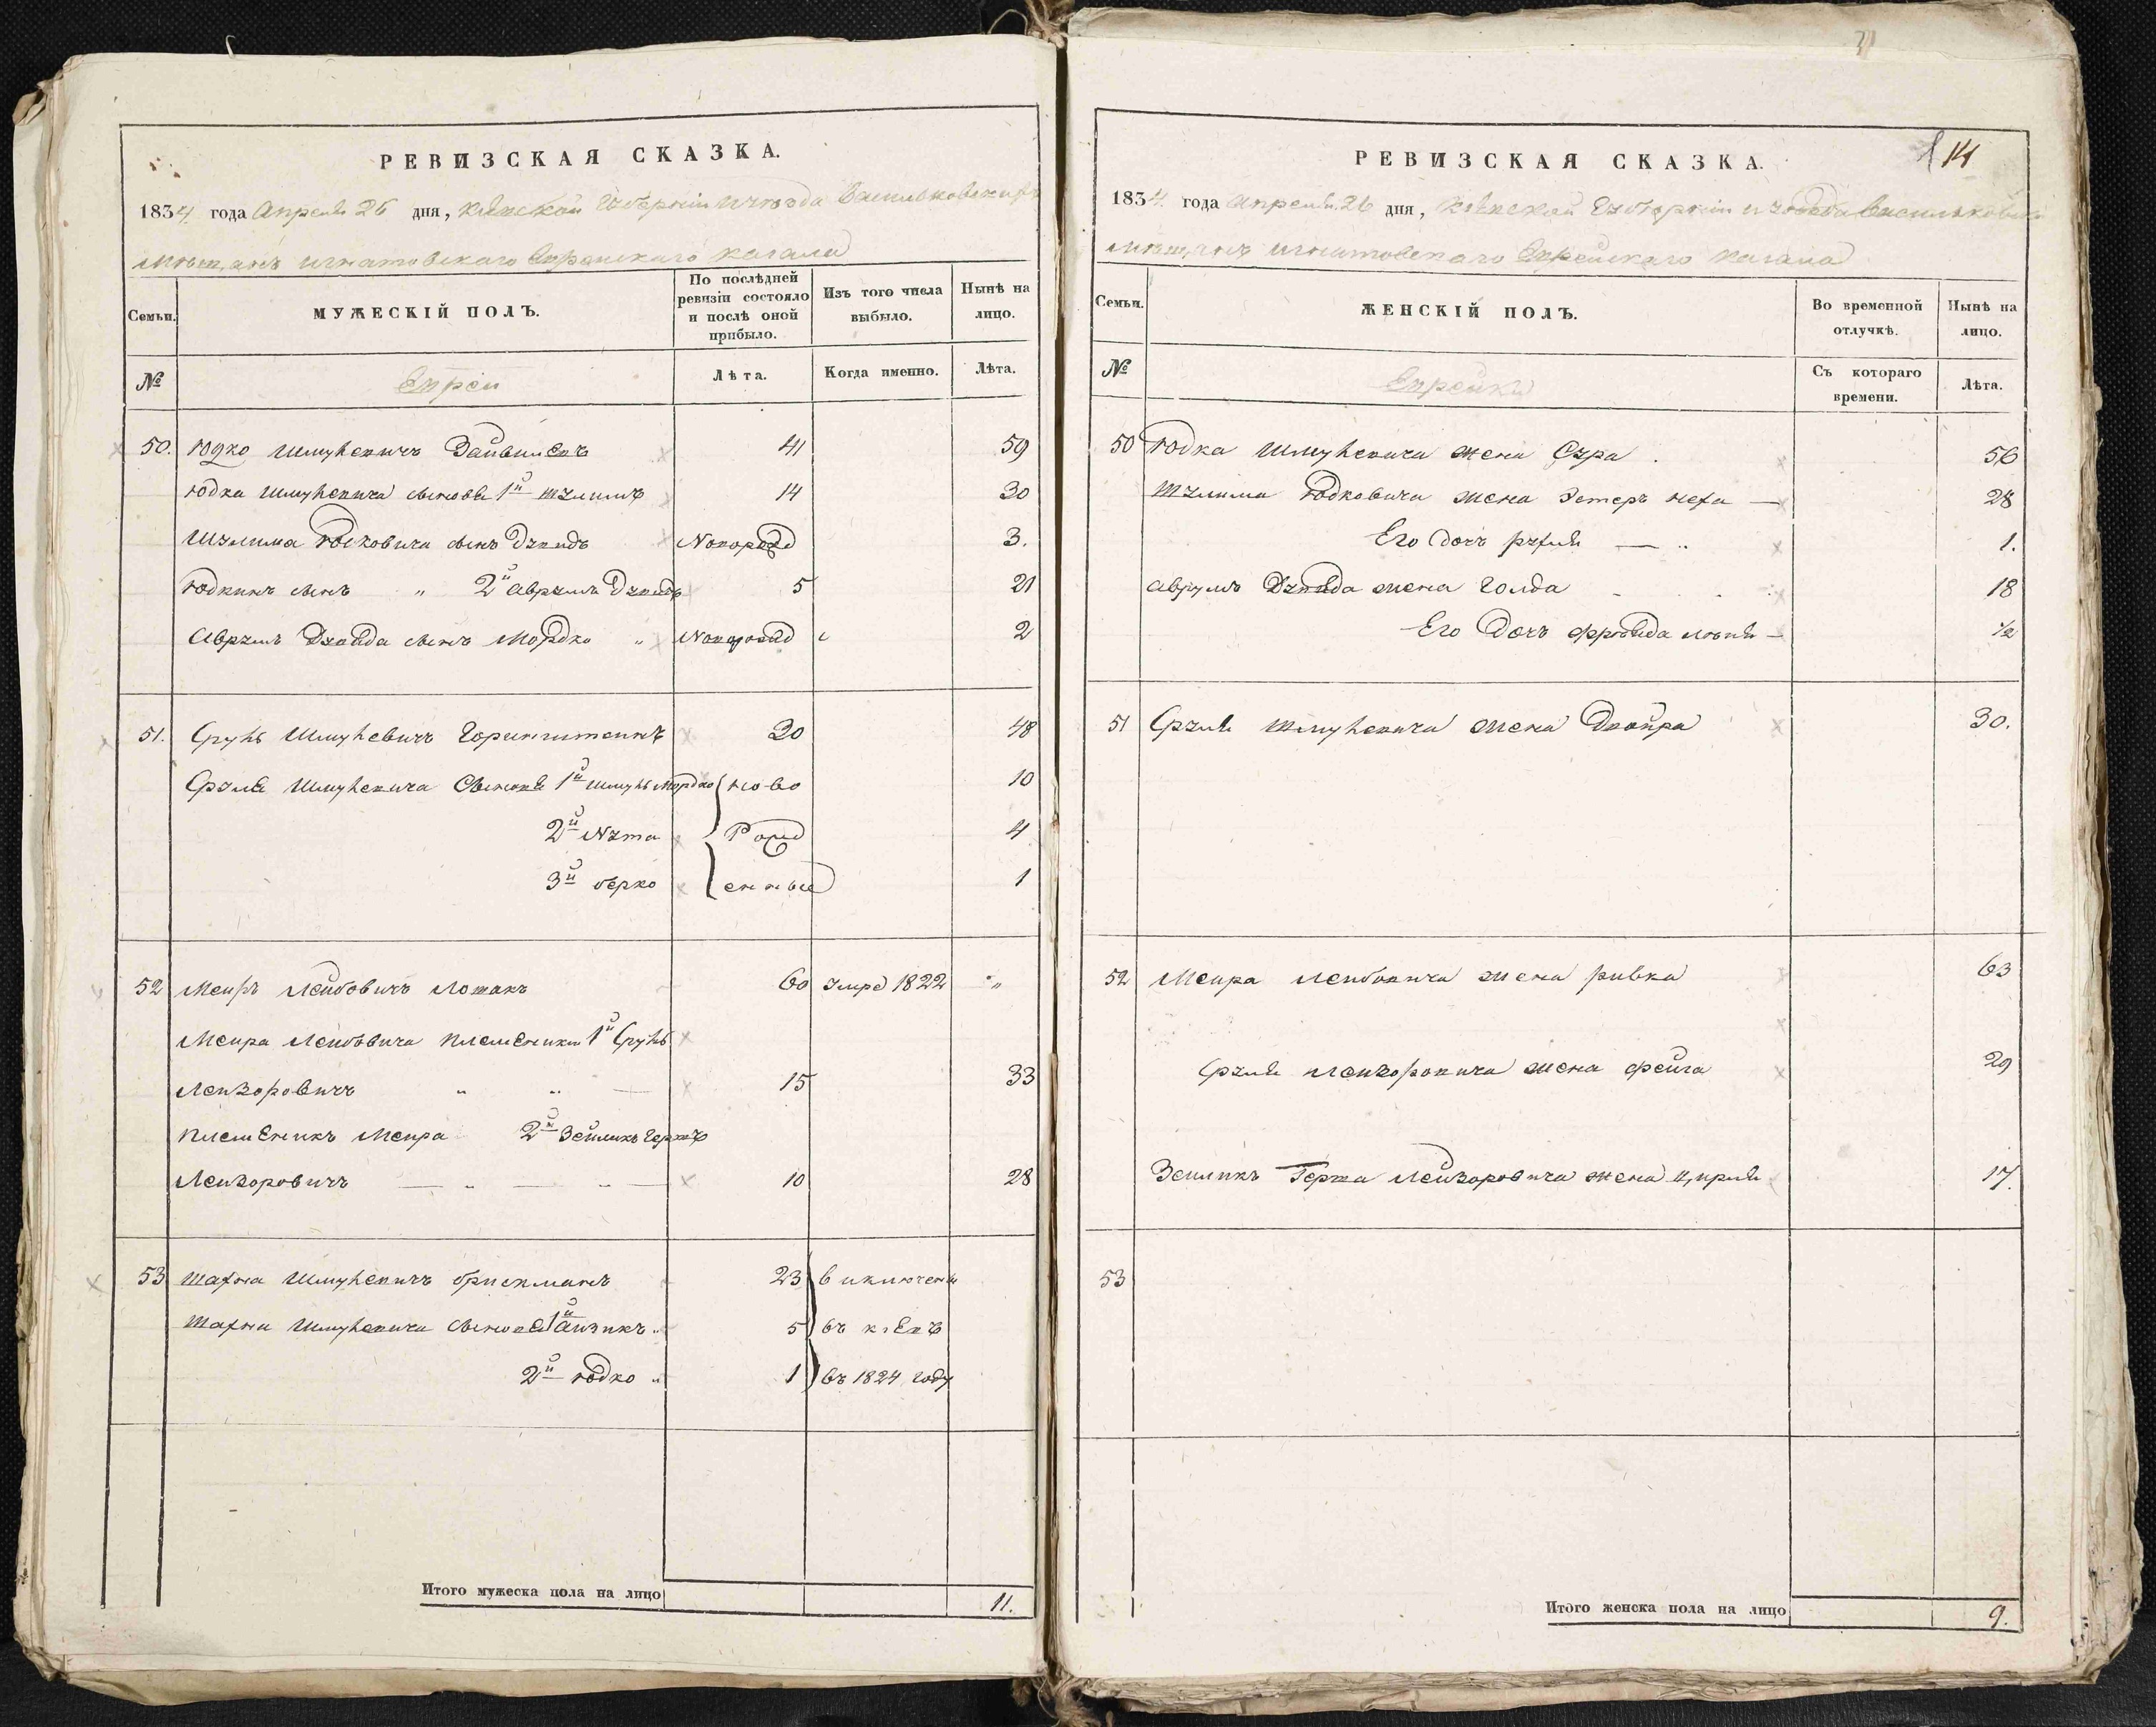 РЕВИЗСКАЯ СКАЗКА.
1834 года Апреля 26 дня, Кіевской Губерніи и уезда Васильковскаго
мѣщанъ игнатовскаго Еврейскаго кагала
Семьи.
МУЖЕСКІЙ ПОЛЪ.
По послѣдней ревизіи состояло и послѣ оной прибыло.
Изъ того числа выбыло.
Нынѣ на лицо.
№
Евреи
Лѣта.
Когда именно.
Лѣта.
50. Юдко Шмулевичъ 41 59
Юдка Шмулевича сыновья 1й 14 30
сынъ Дувидъ Новорожд 3.
Юдкинъ сынъ „ 2й Аврумъ Дувидъ 5 21
Аврумъ Дувида сынъ Мордко „ Новорожд 2
51. Сруль Шмулевичъ 30 48
Сруля Шмулевича Сыновья 1й Шмуль Мордко ново 10
2й Нута Рожд 4
3й берко енные 1
52 Меиръ Лейбовичъ Лошакъ 60 умре 1822 „
Меира Лейбовича племеники 1й Сруль
Лейзоровичъ „ 15 33
племеникъ Меира 2й Зейликъ Гершъ
Лейзоровичъ 10 28
53 Шмулевичъ брискманъ 23 виключены
Шмулевича сыновья 1й айзикъ „ 5 въ кіевъ
2й Юдко „ 1 въ 1824 году
Итого мужеска пола на лицо 11.
31
14
РЕВИЗСКАЯ СКАЗКА.
1834 года Апреля 26 дня, Кіевской Губерніи и уезда Васильковскаго
мѣщанъ игнатовскаго Еврейскаго кагала
Семьи.
ЖЕНСКІЙ ПОЛЪ.
Во временной отлучкѣ.
Нынѣ на лицо.
№
Еврейки
Съ котораго времени.
Лѣта.
50 Юдка Шмулевича жена Сура 56
Юдковича жена Эстеръ неха 28
Его дочъ рухля 1.
аврумъ Дувида жена Голда 18
Его Дочъ фройда 1/2
51 Сруля Шмулевича жена Двойра 30.
52 Меира Лейбовича жена ривка 63
Сруля Лейзоровича жена фейга 29
Зейликъ Герша Лейзоровича жена 17.
53
Итого женска пола на лицо 9.